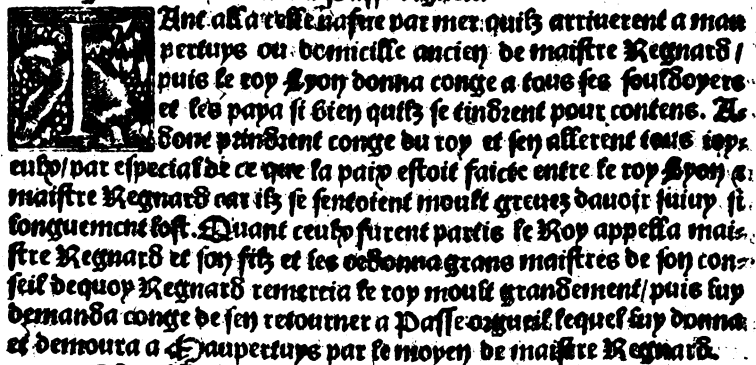 TAnt alla celle nasue par mer quilz arriuerent a mau
pertuys ou domicille ancien de maistre Regnard/
puis le roy Lyon donna conge a tous ses souldoyers
et les paya si bien quilz se tindrent pour contens. A-
donc prindrent conge du roy et sen allerent tous ioy-
eulx/par especial de ce que la paix estoit faicte entre le roy Lyon a
maistre Regnard car ilz se sentoient moult greuez dauoir suiuy si
longuement lost. Quant ceulx furent partis le Roy appella mai-
stre Regnard et son filz et les ordonna grans maistres de son con-
seil dequoy Regnard remercia le roy moult grandement/puis luy
demanda conge de sen retourner a Passe orgueil lequel luy donna
et demoura a Maupertuys par le moyen de maistre Regnard.